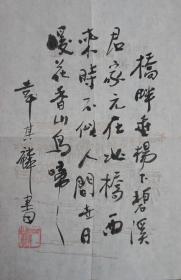 橋畔垂楊下碧溪
君家元在北橋西
來時不似人間世日
暖花香山鳥啼
韋其麟書